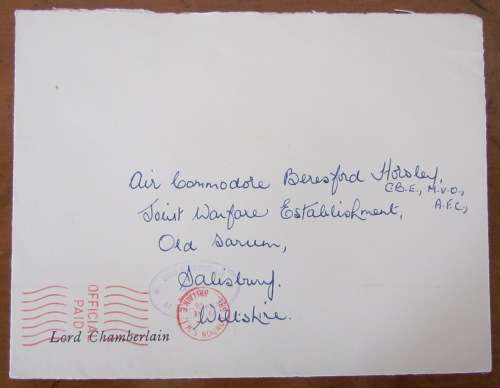 Air Commodore Beresford Horsley,
C.B.E., M.V.O.,
A.F.C.,
Joint Warfare Establishment,
Old Sarum,
Salisbury.
Wiltshire.
OFFICIAL
PAID
Lord Chamberlain